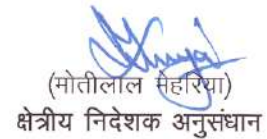 (मोतीलाल मेहरिया)
क्षेत्रीय निदेशक अनुसंधान